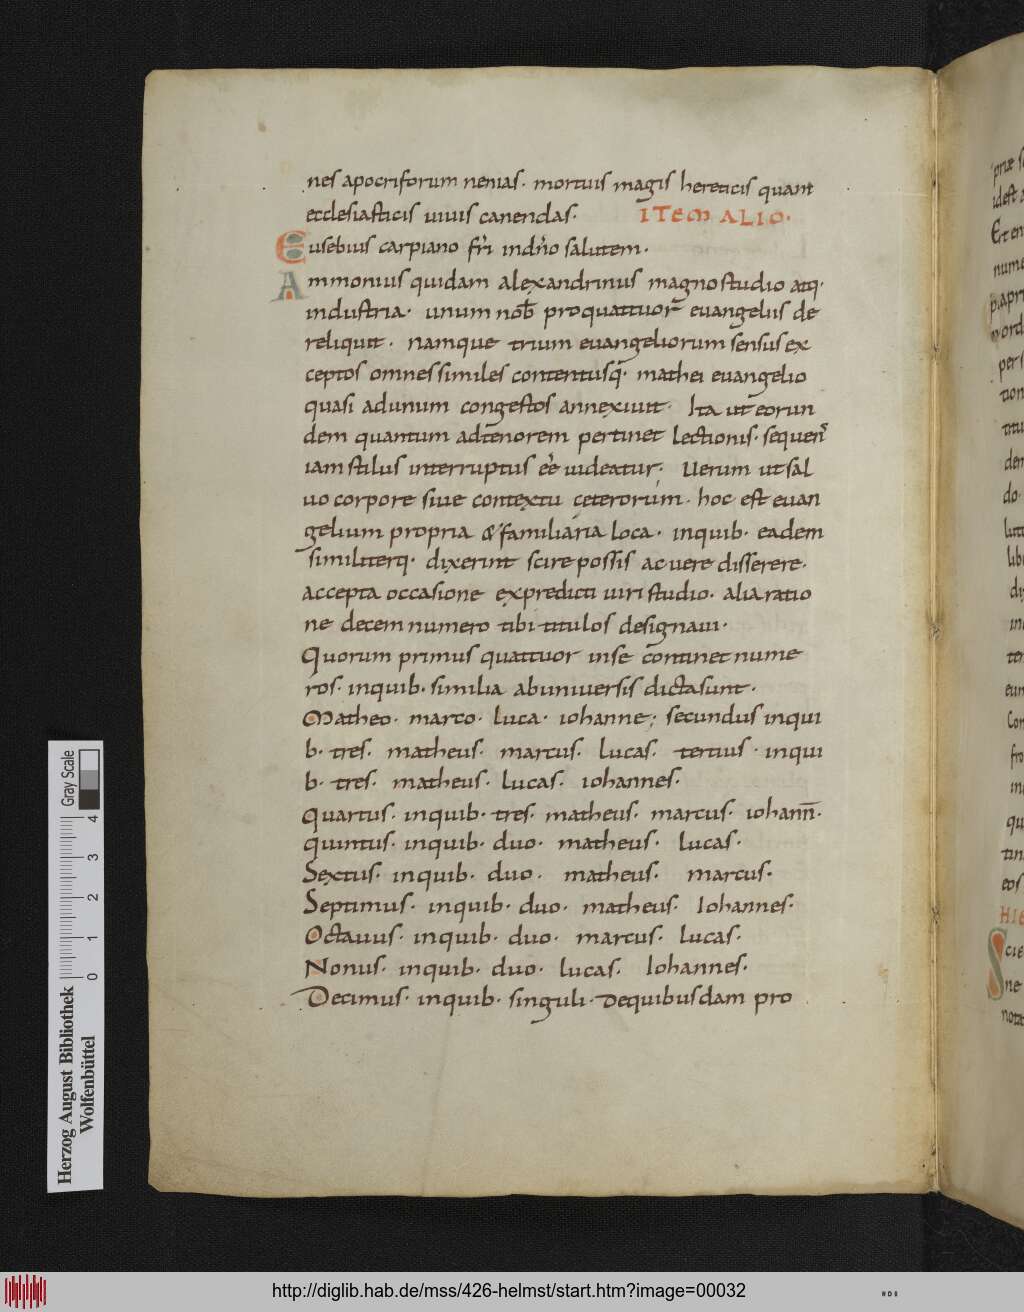 nes apocriforum nenias · mortuis magis hereticis quam
ecclesiasticis uiuis canendas · ITEM ALIO ·
Eusebius carpiano fr̄i indn̄o salutem ·
Ammonius quidam alexandrinus magno studio atq·
industria · unum nob̄ pro quattuor̄ euangeliis de
reliquit · namque trium euangeliorum sensus ex
ceptos omnes similes contentusq· mathei euangelio
quasi ad unum congestos annexiuit · Ita ut eorun
dem quantum ad tenorem pertinet lectionis · sequen̄
iam stilus interruptus eē uideatur · Uerum ut sal
uo corpore siue contextu ceterorum · hoc est euan
gelium propria & familiaria loca · inquib· eadem
similiterq· dixerint scire possis ac uere disserere ·
accepta occasione ex predicti uiri studio · alia ratio
ne decem numero tibi titulos designaui ·
Quorum primus quattuor in se continet nume
ros · inquib· similia ab uniuersis dicta sunt ·
Matheo · marco · luca · iohanne ; secundus inqui
b· tres · matheus · marcus · lucas · tertius · inqui
b· tres · matheus · lucas · iohannes ·
quartus · inquib· tres · matheus · marcus · iohann̄ ·
quintus · inquib· duo · matheus · lucas ·
Sextus · inquib· duo · matheus · marcus ·
Septimus · inquib· duo · matheus · Iohannes ·
Octauus · inquib· duo · marcus · lucas ·
Nonus · inquib· duo · lucas · Iohannes ·
Decimus · inquib· singuli · De quibusdam pro
Herzog August Bibliothek
Wolfenbüttel
0 1 2 3 4
Gray Scale
http://diglib.hab.de/mss/426-helmst/start.htm?image=00032